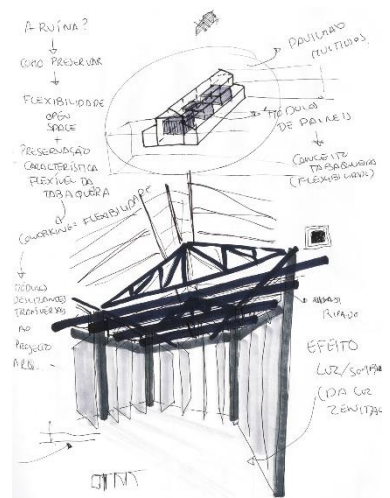 A RUÍNA?
COMO PRESERVAR
FLEXIBILIDADE
OPEN
SPACE
+
PRESERVAÇÃO
CARACTERÍSTICA
FLEXÍVEL DA
TABAQUEIRA
COWORKING = FLEXIBILIDADE
MÓDULOS
DESLIZANTES
TRANSVERSAIS
AO
PROJECTO
ARQ.
PAVILHÃO
MULTIUSOS
MÓDULOS
DE PAINEIS
CONCEITO
TABAQUEIRA
(FLEXIBILIDADE)
RIPADO
EFEITO
LUZ/SOMBRA
(DA LUZ
ZENITAL